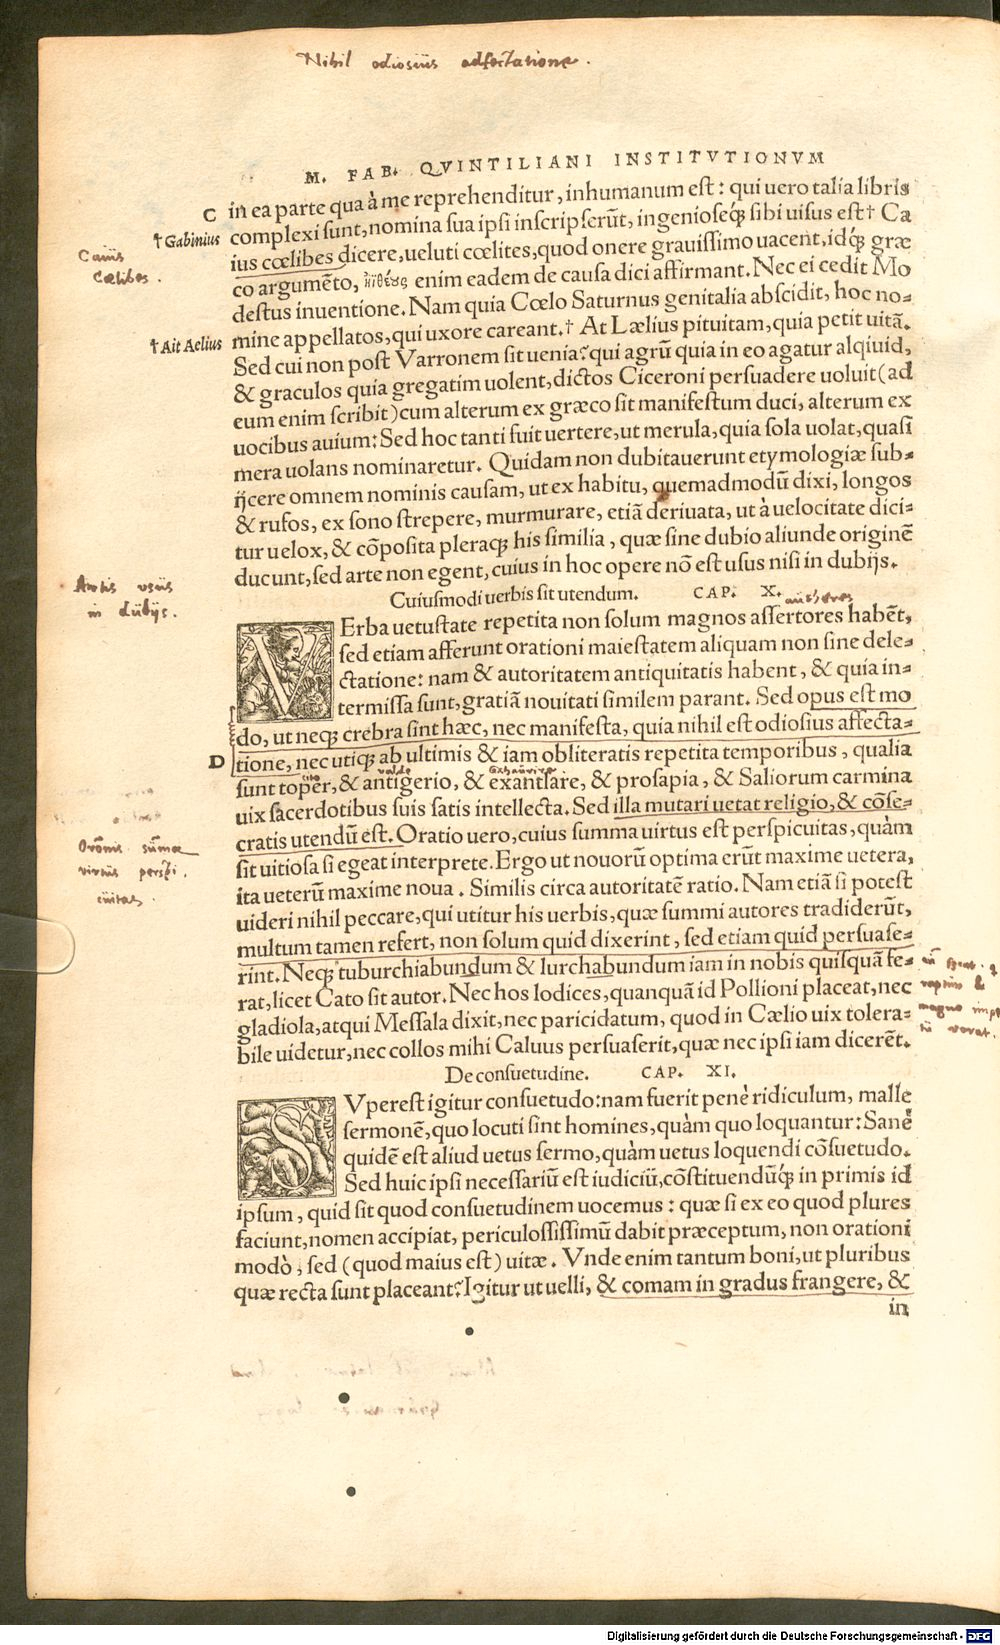 Nihil odiosius adfectatione.
M. FAB. QVINTILIANI INSTITVTIONVM
C in ea parte qua à me reprehenditur, inhumanum est: qui uero talia libris
†Gabinius complexi sunt, nomina sua ipsi inscripserũt, ingenioseq́; sibi uisus est† Ca
Caius
Cœlibes.
ius cœlibes dicere, ueluti cœlites, quod onere grauissimo uacent, idq́; græ
co argumẽto, ἠϊθέȣς enim eadem de causa dici affirmant. Nec ei cedit Mo
destus inuentione. Nam quia Cœlo Saturnus genitalia abscidit, hoc no=
†Ait Aelius mine appellatos, qui uxore careant.† At Lælius pituitam, quia petit uitã.
Sed cui non post Varronem sit uenia? qui agrũ quia in eo agatur alqiuid,
& graculos quia gregatim uolent, dictos Ciceroni persuadere uoluit (ad
eum enim scribit) cum alterum ex græco sit manifestum duci, alterum ex
uocibus auium: Sed hoc tanti fuit uertere, ut merula, quia sola uolat, quasi
mera uolans nominaretur. Quidam non dubitauerunt etymologiæ sub=
ijcere omnem nominis causam, ut ex habitu, quemadmodũ dixi, longos
& rufos, ex sono strepere, murmurare, etiã deriuata, ut à uelocitate dici=
tur uelox, & cõposita pleraq; his similia, quæ sine dubio aliunde originẽ
ducunt, sed arte non egent, cuius in hoc opere nõ est usus nisi in dubijs.
Artis usus
in dubijs.
Cuiusmodi uerbis sit utendum. CAP. X.
VErba uetustate repetita non solum magnos assertores habẽt,
sed etiam afferunt orationi maiestatem aliquam non sine dele=
ctatione: nam & autoritatem antiquitatis habent, & quia in=
termissa sunt, gratiã nouitati similem parant. Sed opus est mo
do, ut neq; crebra sint hæc, nec manifesta, quia nihil est odiosius affecta=
D tione, nec utiq; ab ultimis & iam obliteratis repetita temporibus, qualia
cito valde
sunt toper, & antigerio, & exantlare, & prosapia, & Saliorum carmina
uix sacerdotibus suis satis intellecta. Sed illa mutari uetat religio, & cõse=
cratis utendũ est. Oratio uero, cuius summa uirtus est perspicuitas, quàm
Orõnis sũma
virtus perspi
cuitas.
sit uitiosa si egeat interprete. Ergo ut nouorũ optima erũt maxime uetera,
ita ueterũ maxime noua. Similis circa autoritatẽ ratio. Nam etiã si potest
uideri nihil peccare, qui utitur his uerbis, quæ summi autores tradiderũt,
multum tamen refert, non solum quid dixerint, sed etiam quid persuase=
rint. Neq; tuburchiabundum & lurchabundum iam in nobis quisquã fe=
rat, licet Cato sit autor. Nec hos lodices, quanquã id Pollioni placeat, nec
gladiola, atqui Messala dixit, nec paricidatum, quod in Cælio uix tolera=
bile uidetur, nec collos mihi Caluus persuaserit, quæ nec ipsi iam dicerẽt.
raptim &
magno
vorat.
De consuetudine. CAP. XI.
SVperest igitur consuetudo: nam fuerit penè ridiculum, malle
sermonẽ, quo locuti sint homines, quàm quo loquantur: Sanẽ
quidẽ est aliud uetus sermo, quàm uetus loquendi cõsuetudo.
Sed huic ipsi necessariũ est iudiciũ, cõstituendũq́; in primis id
ipsum, quid sit quod consuetudinem uocemus: quæ si ex eo quod plures
faciunt, nomen accipiat, periculosissimũ dabit præceptum, non orationi
modò, sed (quod maius est) uitæ. Vnde enim tantum boni, ut pluribus
quæ recta sunt placeant? Igitur ut uelli, & comam in gradus frangere, &
in
Digitalisierung gefördert durch die Deutsche Forschungsgemeinschaft - DFG